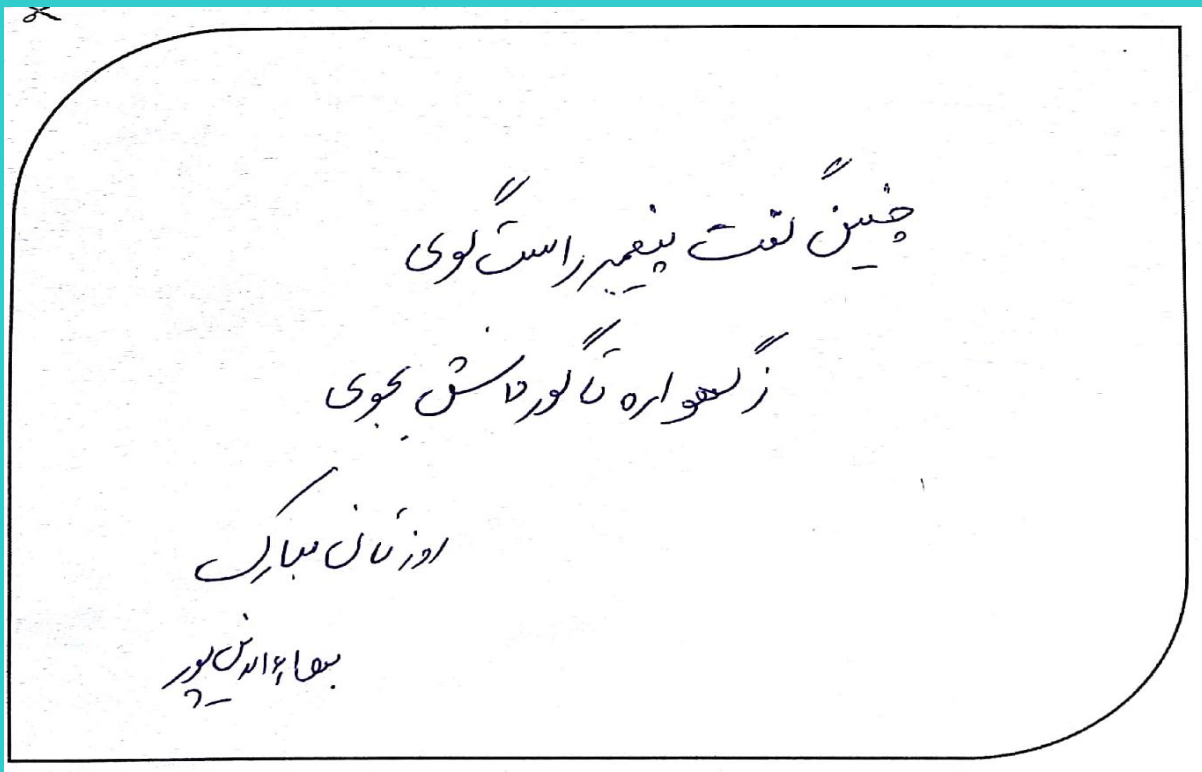 چنین گفت پیغمبر راست گوی
ز گهواره تا گور دانش بجوی
روزتان مبارک
بهاءالدین پور